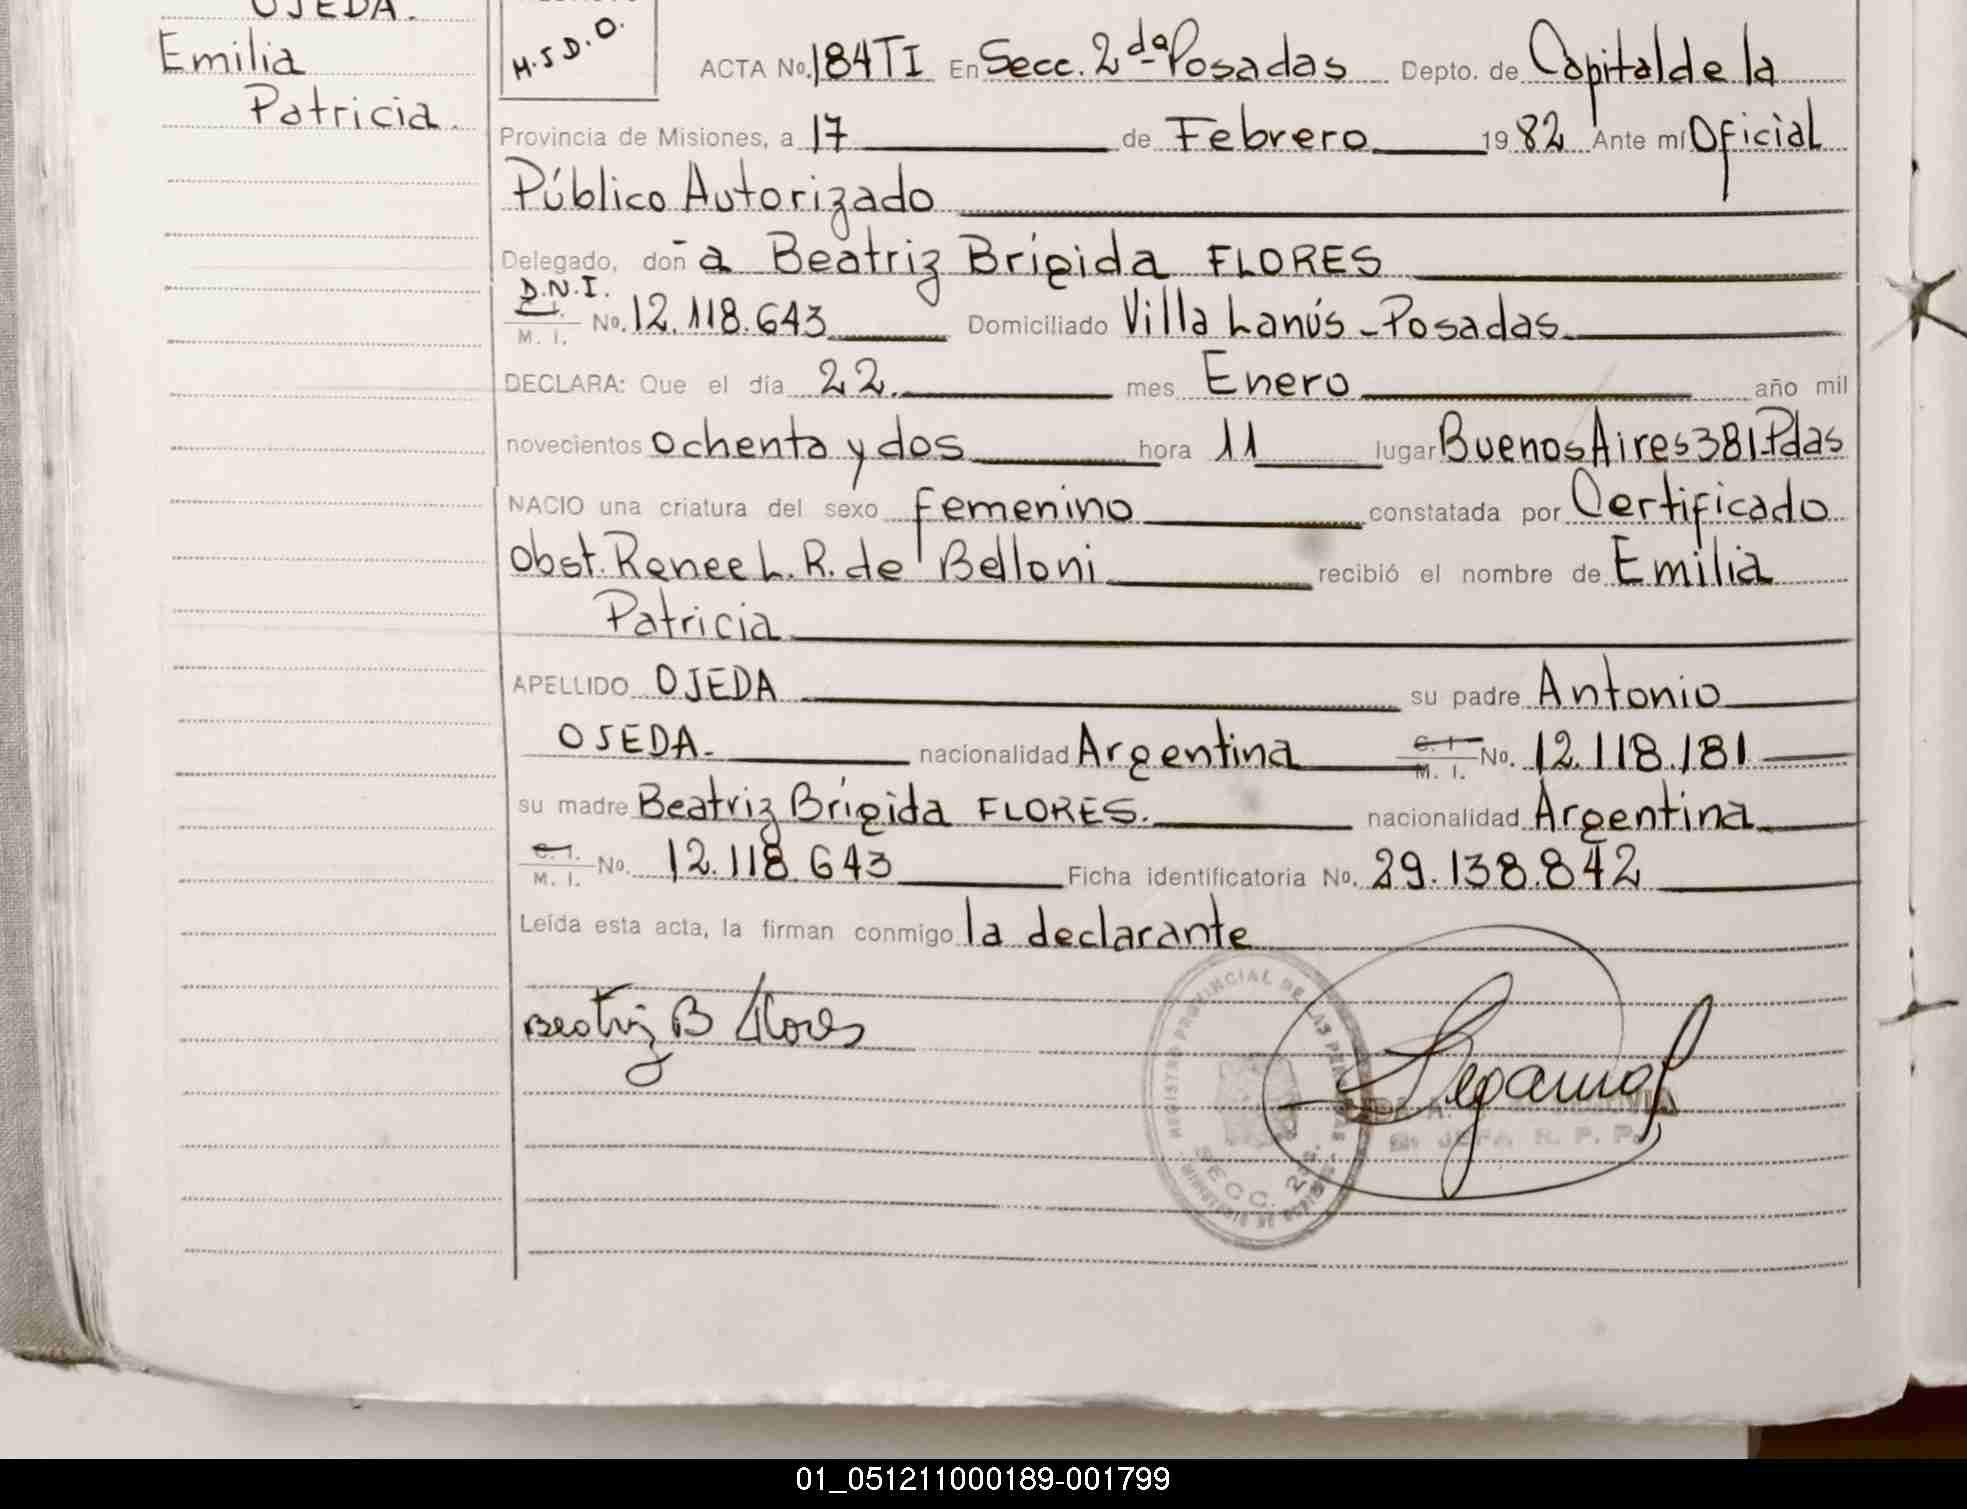 OJEDA.
Emilia
Patricia.
M.S.D.O.
ACTA No. 184TI En Secc. 2da Posadas Depto. de Capital de la
Provincia de Misiones, a 17 de Febrero 1982 Ante mí Oficial
Público Autorizado
Delegado, doña Beatriz Brígida FLORES
D.N.I.
C. I.
M. I. No. 12.118.643 Domiciliado Villa Lanús - Posadas
DECLARA: Que el día 22. mes Enero año mil
novecientos ochenta y dos hora 11 lugar Buenos Aires 381-Pdas
NACIO una criatura del sexo femenino constatada por Certificado
Obst. Renee L. R. de Belloni recibió el nombre de Emilia
Patricia
APELLIDO OJEDA su padre Antonio
OJEDA. nacionalidad Argentina C. I. M. I. No. 12.118.181
su madre Beatriz Brígida FLORES. nacionalidad Argentina
C. I. M. I. No. 12.118.643 Ficha identificatoria No. 29.138.842
Leída esta acta, la firman conmigo la declarante
Beatriz B Flores
REGISTRO PROVINCIAL DE LAS PERSONAS
SECC. 2da.
JEFA R. P. P.
01_051211000189-001799